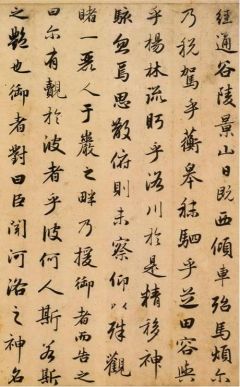 經通谷陵景山日既西傾車殆馬煩尒
乃稅駕乎蘅皋秣駟乎芝田容與
乎楊林流眄乎洛川於是精移神
駭忽焉思散俯則未察仰以殊觀
睹一麗人于巖之畔乃援御者而告之
曰尒有覿於彼者乎彼何人斯若斯
之豔也御者對曰臣聞河洛之神名